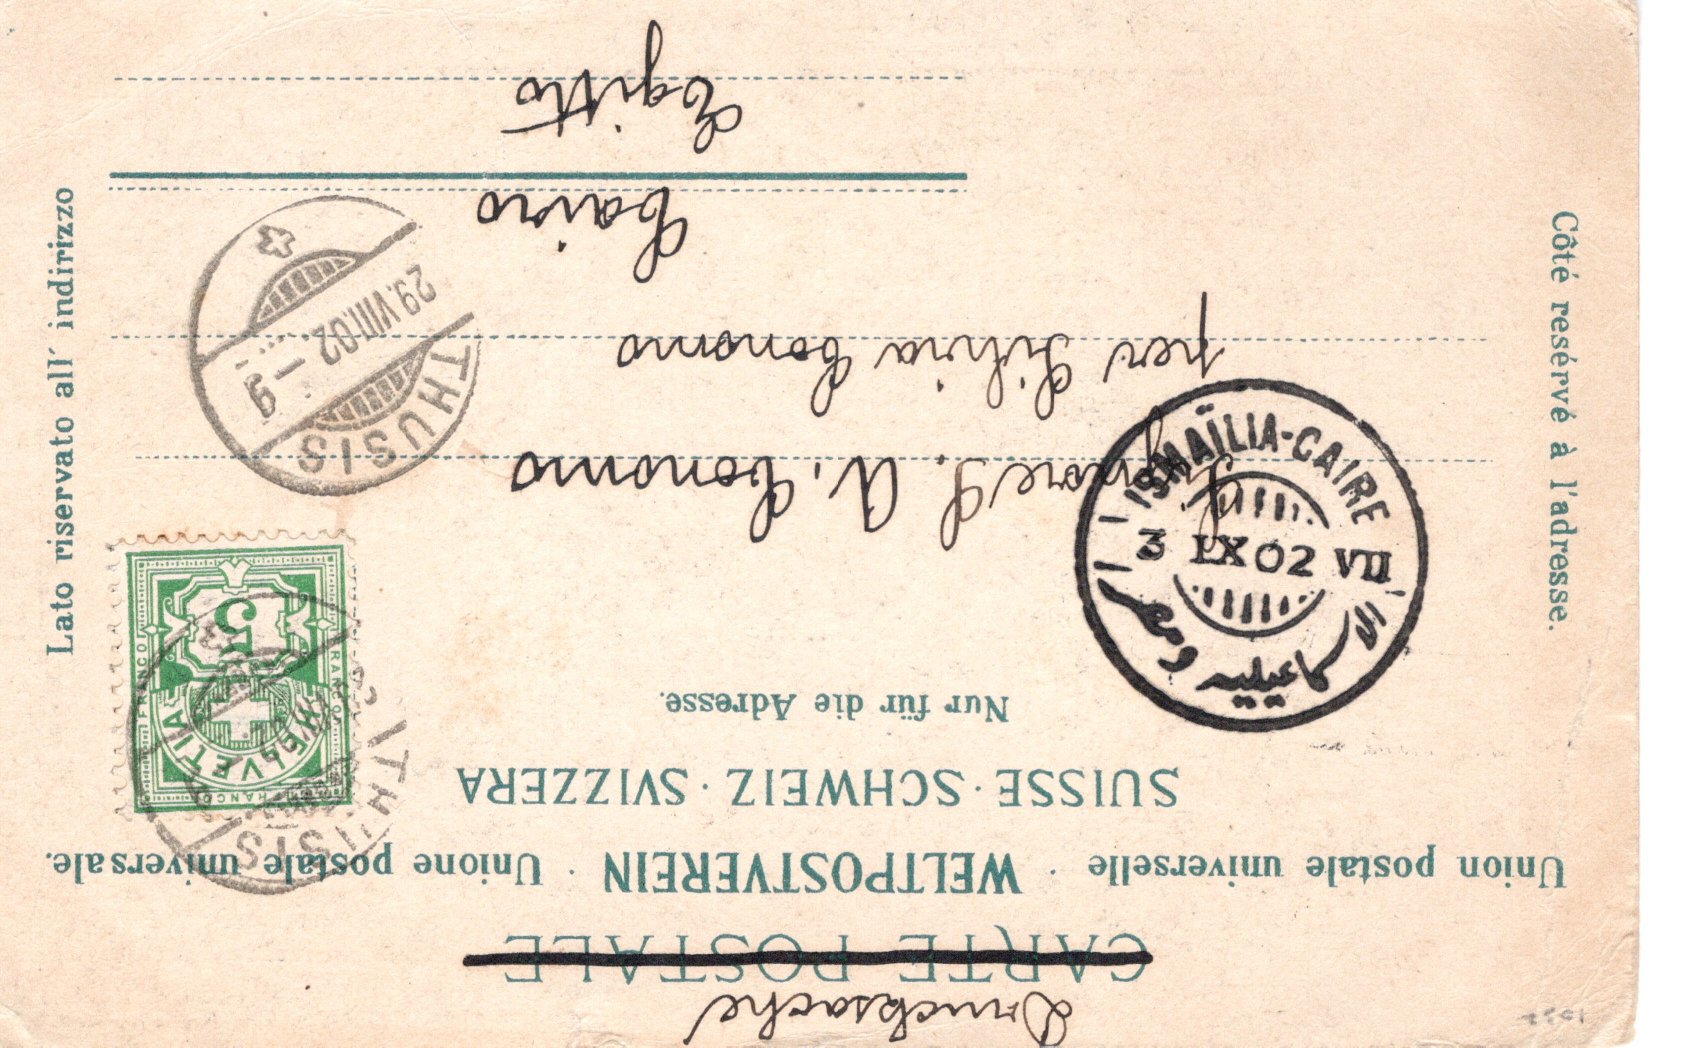 Drucksache
CARTE POSTALE
Union postale universelle · WELTPOSTVEREIN · Unione postale universale.
SUISSE · SCHWEIZ · SVIZZERA
Nur für die Adresse.
Côté resérvé à l'adresse.
Lato riservato all' indirizzo
FRANCO
HELVETIA
5
THUSIS
THUSIS
29.VIII.02.–9
ISMAÏLIA-CAIRE
3 IX 02 VII
Signore S. A. Conomo
per Silvia Conomo
Cairo
Egitto